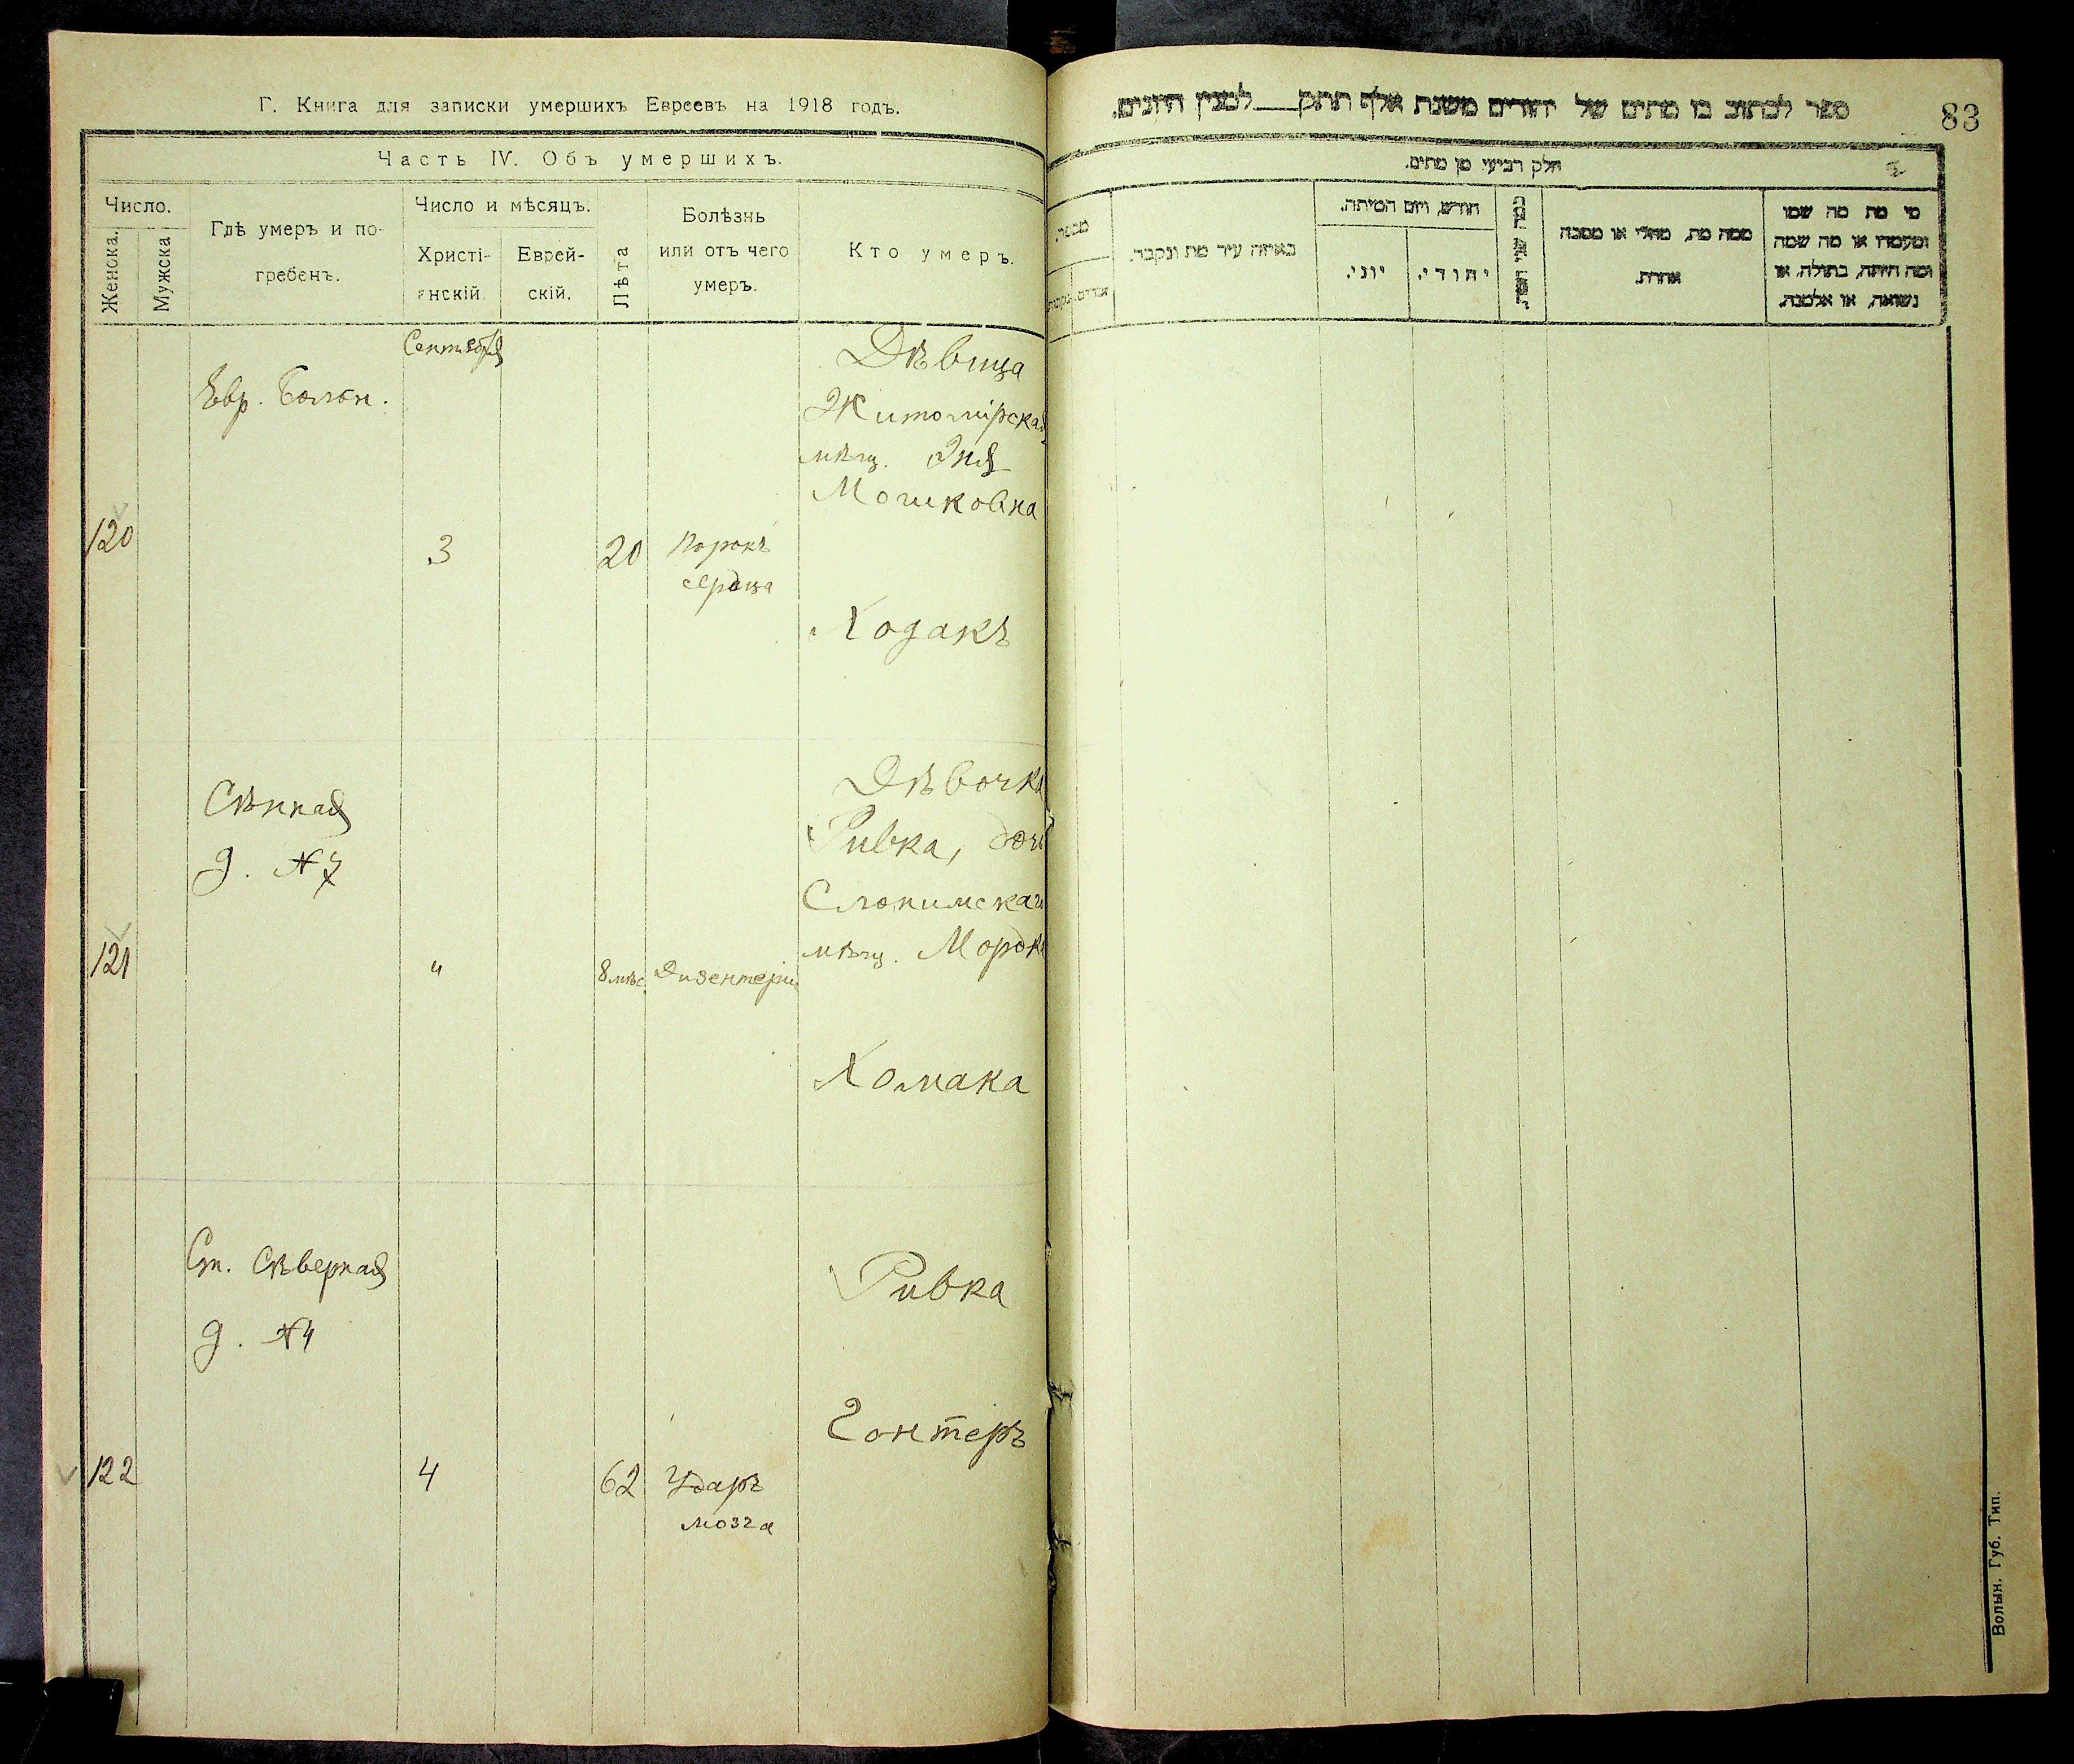 Г. Книга для записки умершихъ Евреевъ на 1918 годъ.
Часть IV. Объ умершихъ.
Число.
Женска.
Мужска
Гдѣ умеръ и по-
гребенъ.
Число и мѣсяцъ.
Христі-
анскій
Еврей-
скій.
Лѣта
Болѣзнь
или отъ чего
умеръ.
Кто умеръ.
Сентября
Евр. Больн.
120
3
20
Порокъ
сердца
Дѣвица
Житомірская
мѣщ. Эня
Мошковна
Ходакъ
Сѣнная
д. №7
121
"
8 мѣс.
Дизентерія
Дѣвочка
Ривка, дочь
Слонимскаго
мѣщ. Мордк
Хомака
Ст. Сѣверная
д. №4
122
4
62
Ударъ
мозга
Ривка
Гонтеръ
ספר לכתוב בו מתים של יהודים משנת אלף תתק___למנין היונים.
83
חלק רביעי מן מתים.
מספר.
זכרים.
נקבות
באיזה עיר מת ונקבר.
חודש, ויום המיתה.
יוני.
יהודי.
ממה מת, מחלי או מסבה
אחרת.
מי מת מה שמו
ומעמדו או מה שמה
ומה היתה, בתולה, או
נשואה, או אלמנה.
Волын. Губ. Тип.